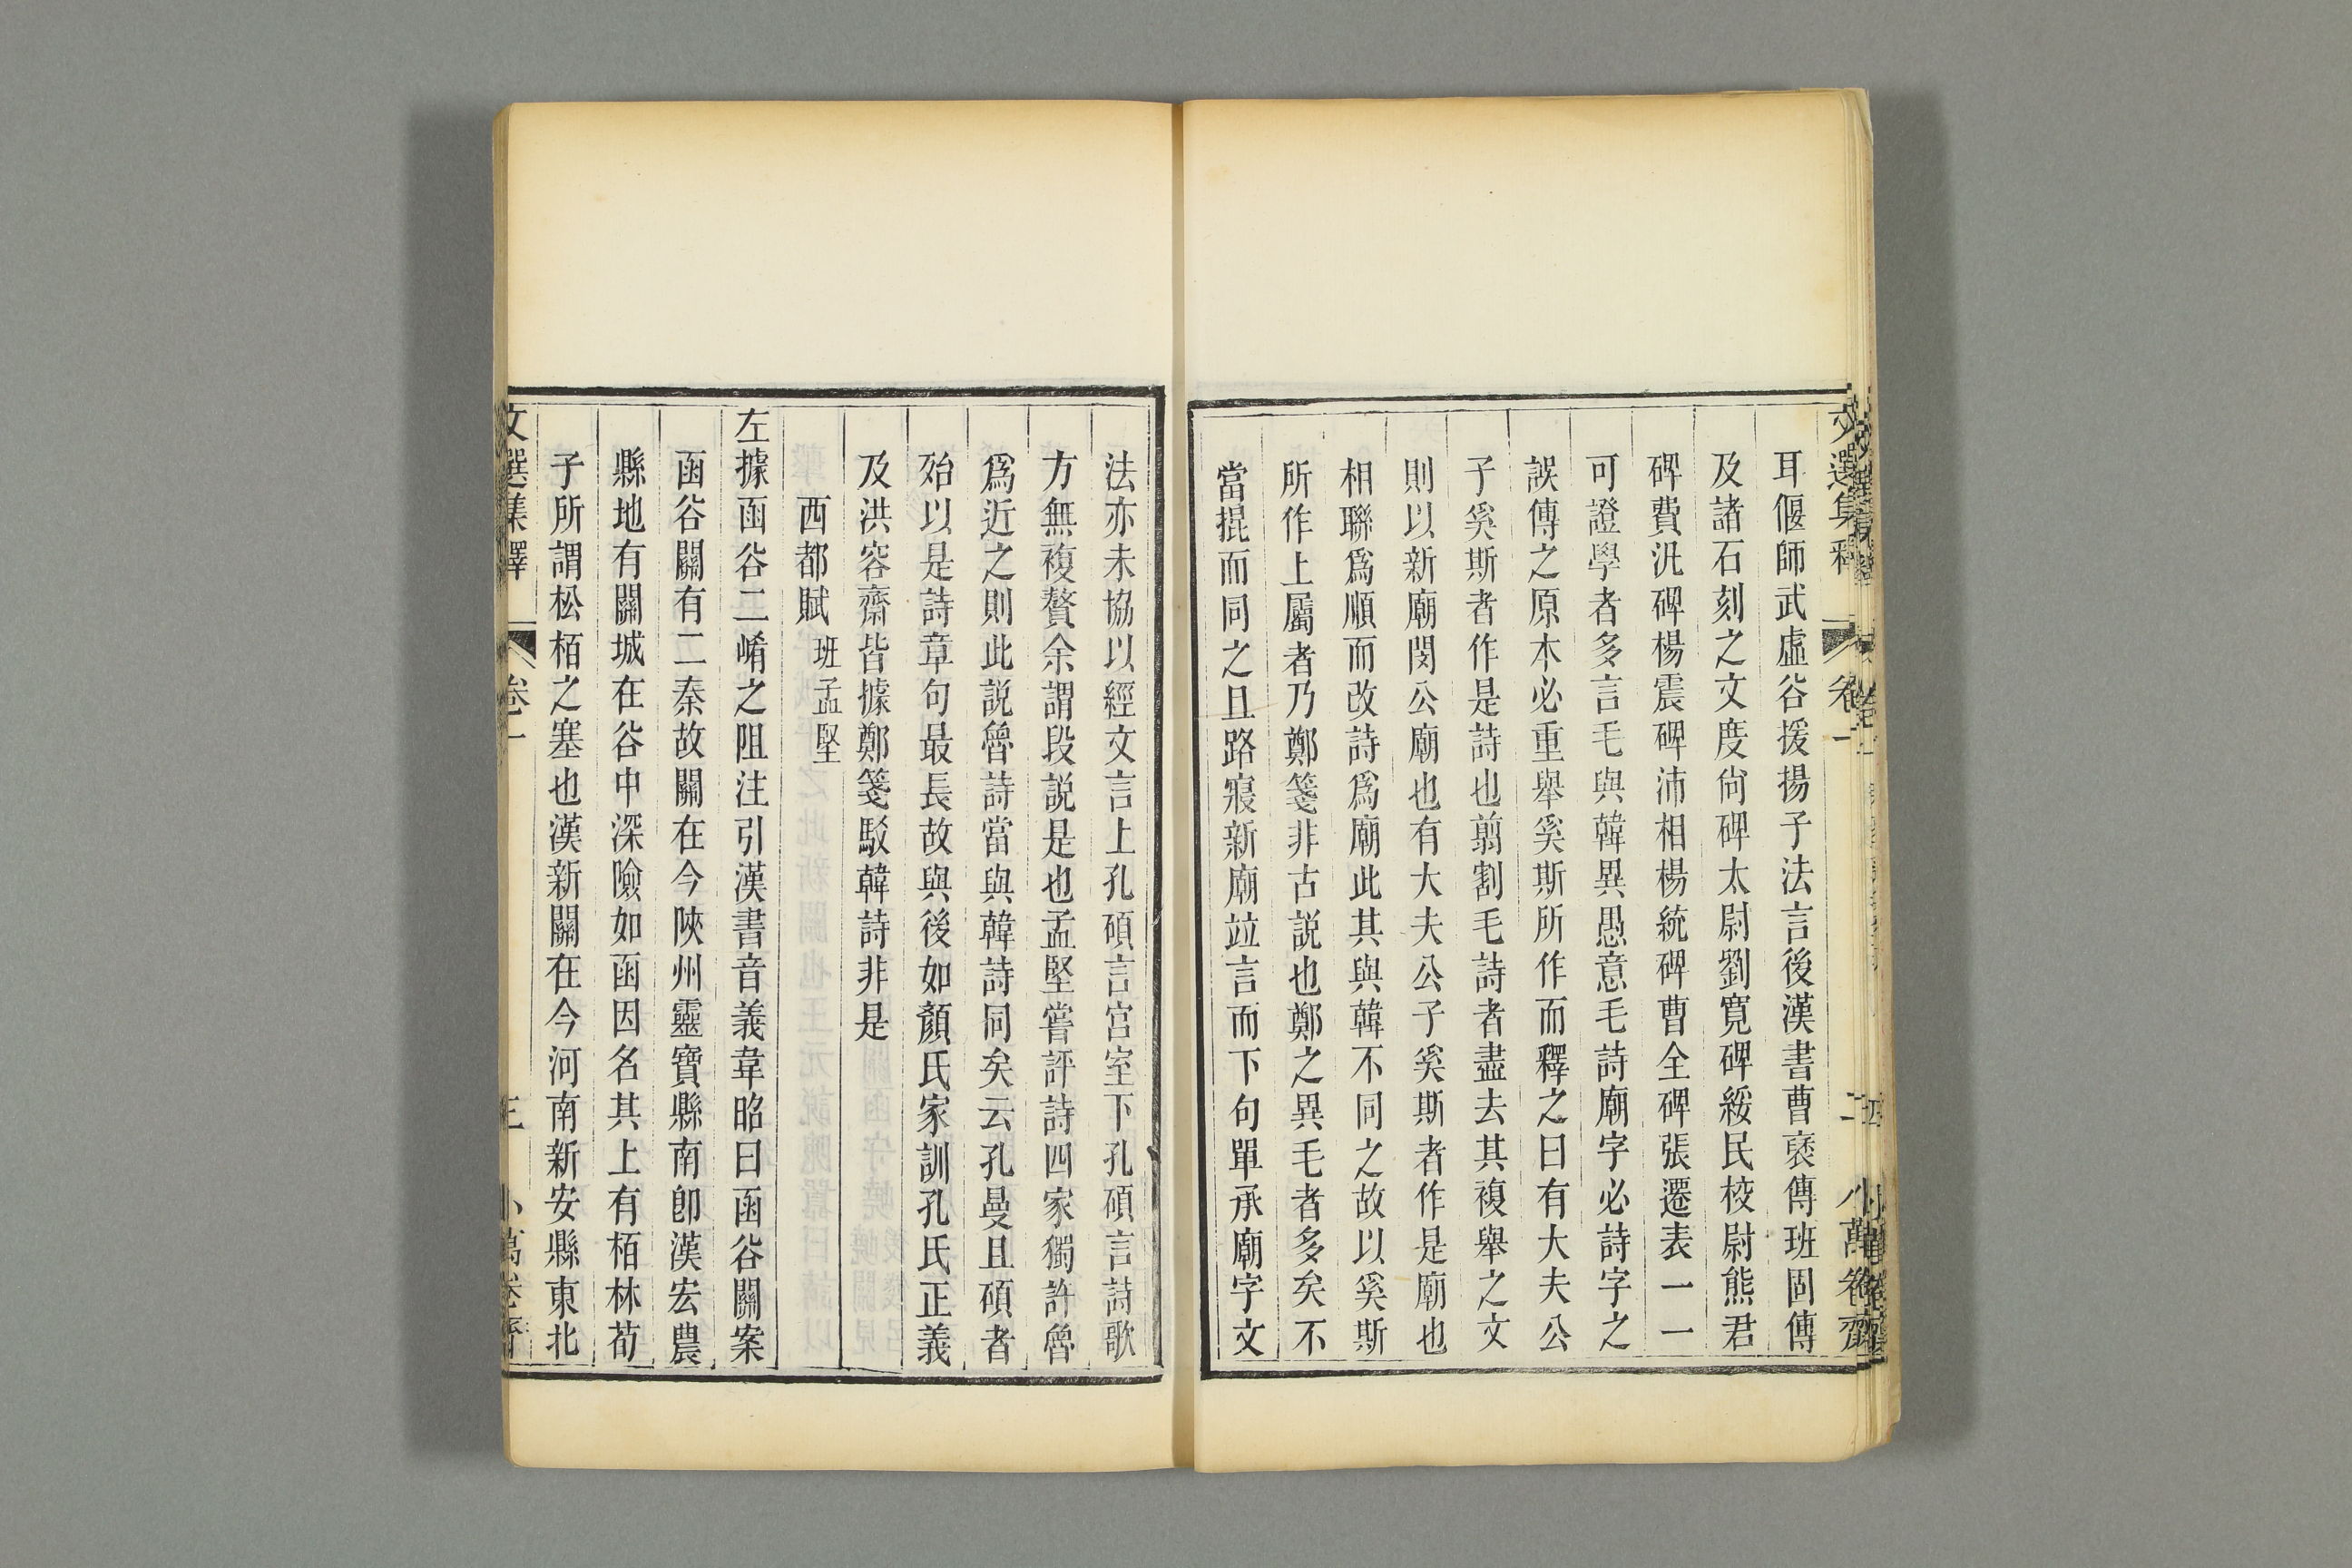 文選集釋 卷一 二 小萬卷齋
耳偃師武虛谷援揚子法言後漢書曹褒傳班固傳
及諸石刻之文度尙碑太尉劉寬碑綏民校尉熊君
碑費汎碑楊震碑沛相楊統碑曹全碑張遷表一一
可證學者多言毛與韓異愚意毛詩廟字必詩字之
誤傳之原本必重舉奚斯所作而釋之曰有大夫公
子奚斯者作是詩也翦割毛詩者盡去其複舉之文
則以新廟閔公廟也有大夫公子奚斯者作是廟也
相聯爲順而改詩爲廟此其與韓不同之故以奚斯
所作上屬者乃鄭箋非古説也鄭之異毛者多矣不
當掍而同之且路寢新廟竝言而下句單承廟字文
法亦未協以經文言上孔碩言宮室下孔碩言詩歌
方無複贅余謂段説是也孟堅嘗評詩四家獨許魯
爲近之則此説魯詩當與韓詩同矣云孔曼且碩者
殆以是詩章句最長故與後如顏氏家訓孔氏正義
及洪容齋皆據鄭箋駁韓詩非是
西都賦 班孟堅
左據函谷二崤之阻注引漢書音義韋昭曰函谷關案
函谷關有二秦故關在今陝州靈寶縣南卽漢宏農
縣地有關城在谷中深險如函因名其上有栢林荀
子所謂松栢之塞也漢新關在今河南新安縣東北
文選集釋 卷一 三 小萬卷齋